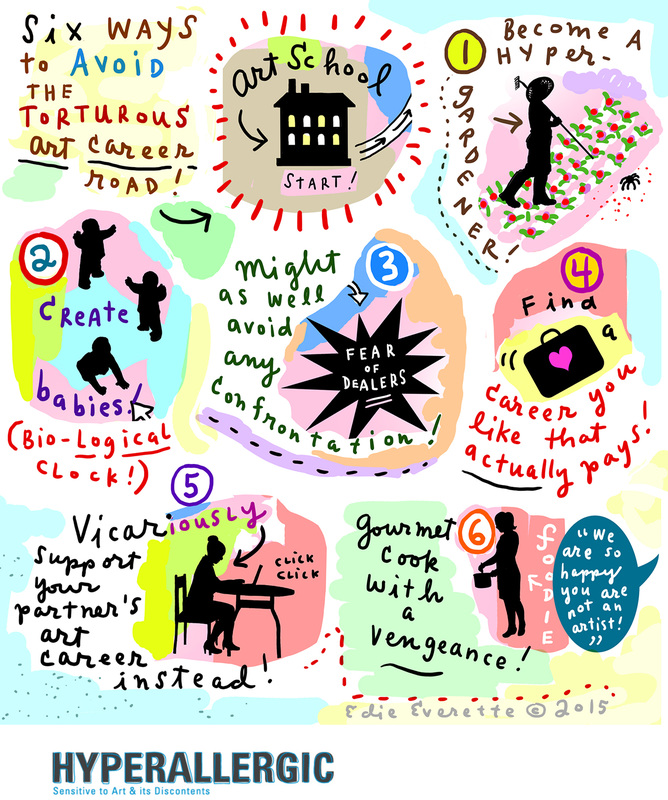 Six WAYS
to AVOID
THE
TORTUROUS
art career
ROAD!
art School
START!
1
BECOME A
HYPER-
GARDENER!
2
CREATE
babies!
(BiO-LOGical
CLOCK!)
3
Might
as well
avoid
any
confrontation!
FEAR
OF
DEALERS
4
Find
a
career you
like that
actually pays!
5
Vicariously
Support
your
partner's
art
career
instead!
CLICK
CLICK
6
Gourmet
Cook
with
a
vengeance!
foodIE
"WE
are so
happy
you are
not an
artist!
"
Edie Everette © 2015
HYPERALLERGIC
Sensitive to Art & its Discontents